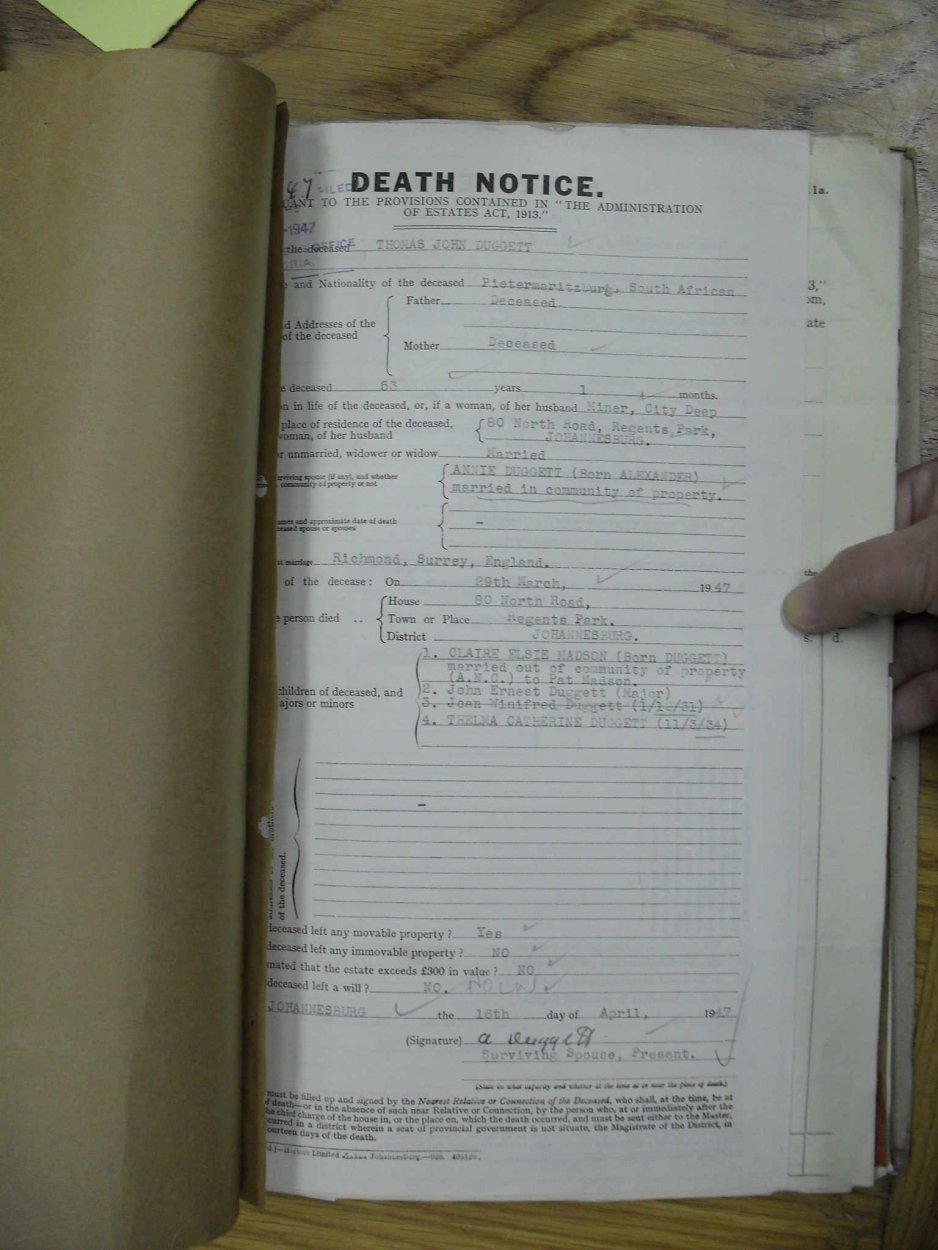 47 FILED DEATH NOTICE.
UANT TO THE PROVISIONS CONTAINED IN "THE ADMINISTRATION
OF ESTATES ACT, 1913."
-1947
the deceased OFFICE THOMAS JOHN DUGGETT
e and Nationality of the deceased Pietermaritzburg, South African
Father Deceased
d Addresses of the
of the deceased
Mother Deceased
e deceased 53 years 1 months.
n in life of the deceased, or, if a woman, of her husband Miner, City Deep
place of residence of the deceased, 80 North Road, Regents Park,
woman, of her husband JOHANNESBURG.
r unmarried, widower or widow Married
urviving spouse (if any), and whether ANNIE DUGGETT (Born ALEXANDER)
community of property or not married in community of property.
ames and approximate date of death
ceased spouse or spouses –
at marriage Richmond, Surrey, England.
of the decease: On 29th March, 1947
House 80 North Road,
e person died .. Town or Place Regents Park.
District JOHANNESBURG.
1. CLAIRE ELSIE MADSON (Born DUGGETT)
married out of community of property
(A.N.C.) to Pat Madson.
children of deceased, and 2. John Ernest Duggett (Major)
ajors or minors 3. Joan Winifred Duggett
4. THELMA CATHERINE DUGGETT (11/3/34)
–
of the deceased.
deceased left any movable property? Yes
deceased left any immovable property? NO
mated that the estate exceeds £300 in value? NO
deceased left a will? NO.
JOHANNESBURG the 16th day of April, 1947
(Signature) a Duggett
Surviving Spouse, Present.
(State in what capacity and whether at the time at or near the place of death.)
must be filled up and signed by the Nearest Relative or Connection of the Deceased, who shall, at the time, be at
f death—or in the absence of such near Relative or Connection, by the person who, at or immediately after the
he chief charge of the house in, or the place on, which the death occurred, and must be sent either to the Master,
curred in a district wherein a seat of provincial government is not situate, the Magistrate of the District, in
ourteen days of the death.
Limited Johannesburg.
1a.
3,"
om,
ate
the
s. d.